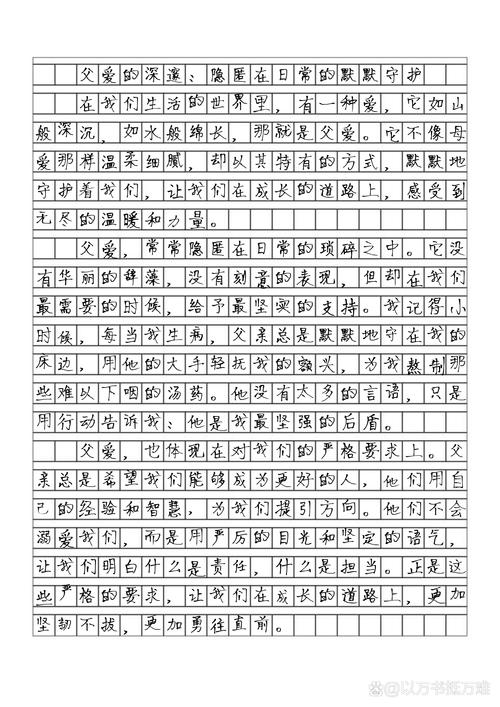 父爱的深邃：隐匿在日常的默默守护
在我们生活的世界里，有一种爱，它如山
般深沉，如水般绵长，那就是父爱。它不像母
爱那样温柔细腻，却以其特有的方式，默默地
守护着我们，让我们在成长的道路上，感受到
无尽的温暖和力量。
父爱，常常隐匿在日常的琐碎之中。它没
有华丽的辞藻，没有刻意的表现，但却在我们
最需要的时候，给予最坚实的支持。我记得小
时候，每当我生病，父亲总是默默地守在我的
床边，用他的大手轻抚我的额头，为我熬制那
些难以下咽的汤药。他没有太多的言语，只是
用行动告诉我：他是我最坚强的后盾。
父爱，也体现在对我们的严格要求上。父
亲总是希望我们能够成为更好的人，他们用自
己的经验和智慧，为我们提引方向。他们不会
溺爱我们，而是用严厉的目光和坚定的语气，
让我们明白什么是责任，什么是担当。正是这
些严格的要求，让我们在成长的道路上，更加
坚韧不拔，更加勇往直前。
@以万书抵万难